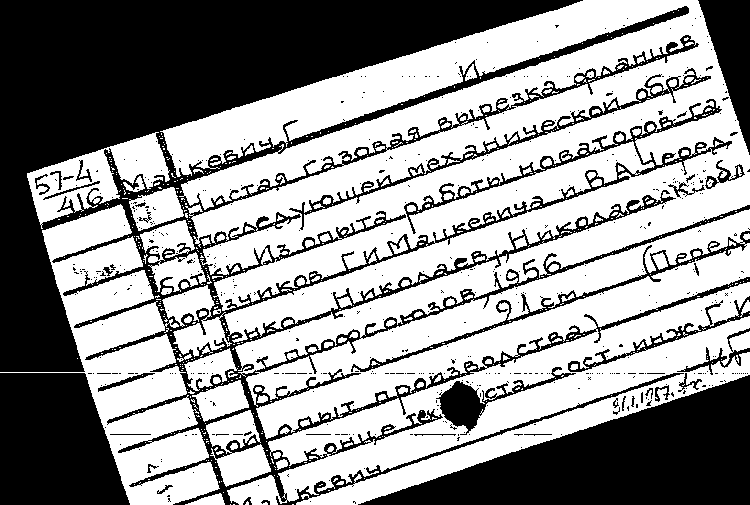 57-4
416
Мацкевич, Г. И.
Чистая газовая вырезка фланцев
без последующей механической обра-
ботки. Из опыта работы новаторов-га-
зорезчиков Г.И. Мацкевича и В.А. Черед-
ниченко. Николаев, Николаевск. обл.
совет профсоюзов, 1956
8 с. с илл. 21 см. (Передо
вой опыт производства)
В конце текста сост: инж. Г. И.
Мацкевич